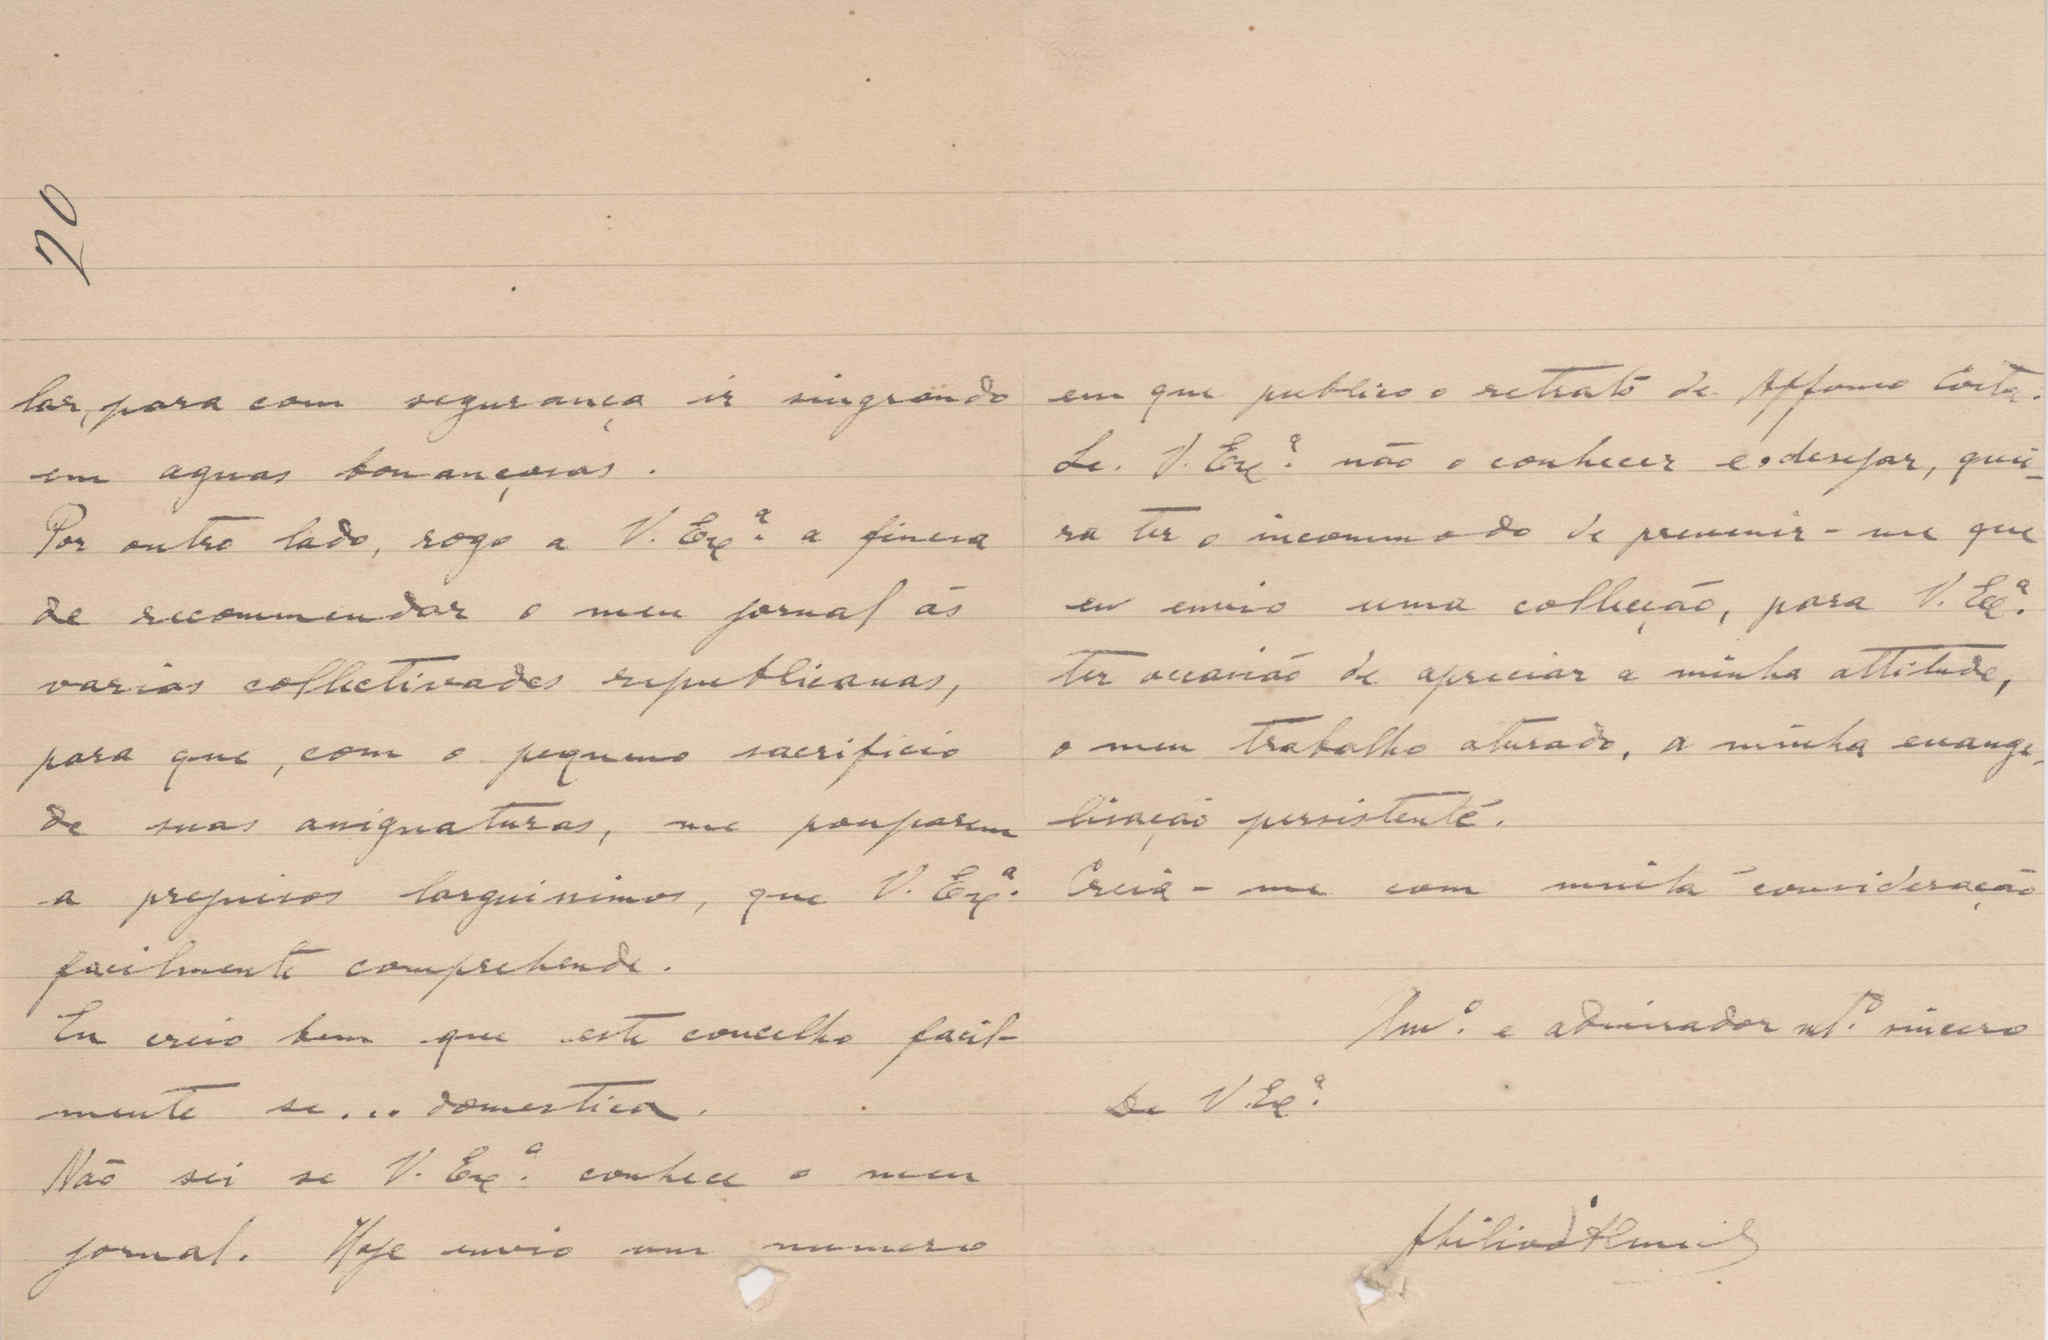 20
lar, para com segurança ir singrando
em aguas bonançosas.
Por outro lado, rogo a V. Exª. a fineza
de recommendar o meu jornal ás
varias collectivades republicanas,
para que, com o pequeno sacrificio
de suas assignaturas, me pouparem
a prejuisos larguissimos, que V. Exª.
facilmente comprehende.
Eu creio bem que este concelho facil-
mente se... domestica.
Não sei se V. Exª. conhece o meu
jornal. Hoje envio um numero
em que publico o retrato de Affonso Costa.
Se. V. Exª. não o conhecer e o desejar, quei-
ra ter o incommodo de prevenir-me que
eu envio uma collecção, para V. Exª.
ter occasião de apreciar a minha attitude,
o meu trabalho aturado, a minha evange-
lisação persistente.
Creia-me com muita consideração
Amº. e admirador mtº. sincero
De V. Exª.
Abilio d'Almeida